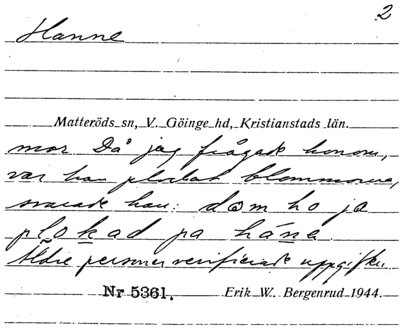 2
Hanne
Matteröds sn, V. Göinge hd, Kristianstads län.
mor. Då jag frågade honom,
var han plockat blommorna,
svarade han: dom ho ja
plokad pa häna.
Äldre personer verifierade uppgiften.
Nr 5361. Erik W. Bergenrud 1944.